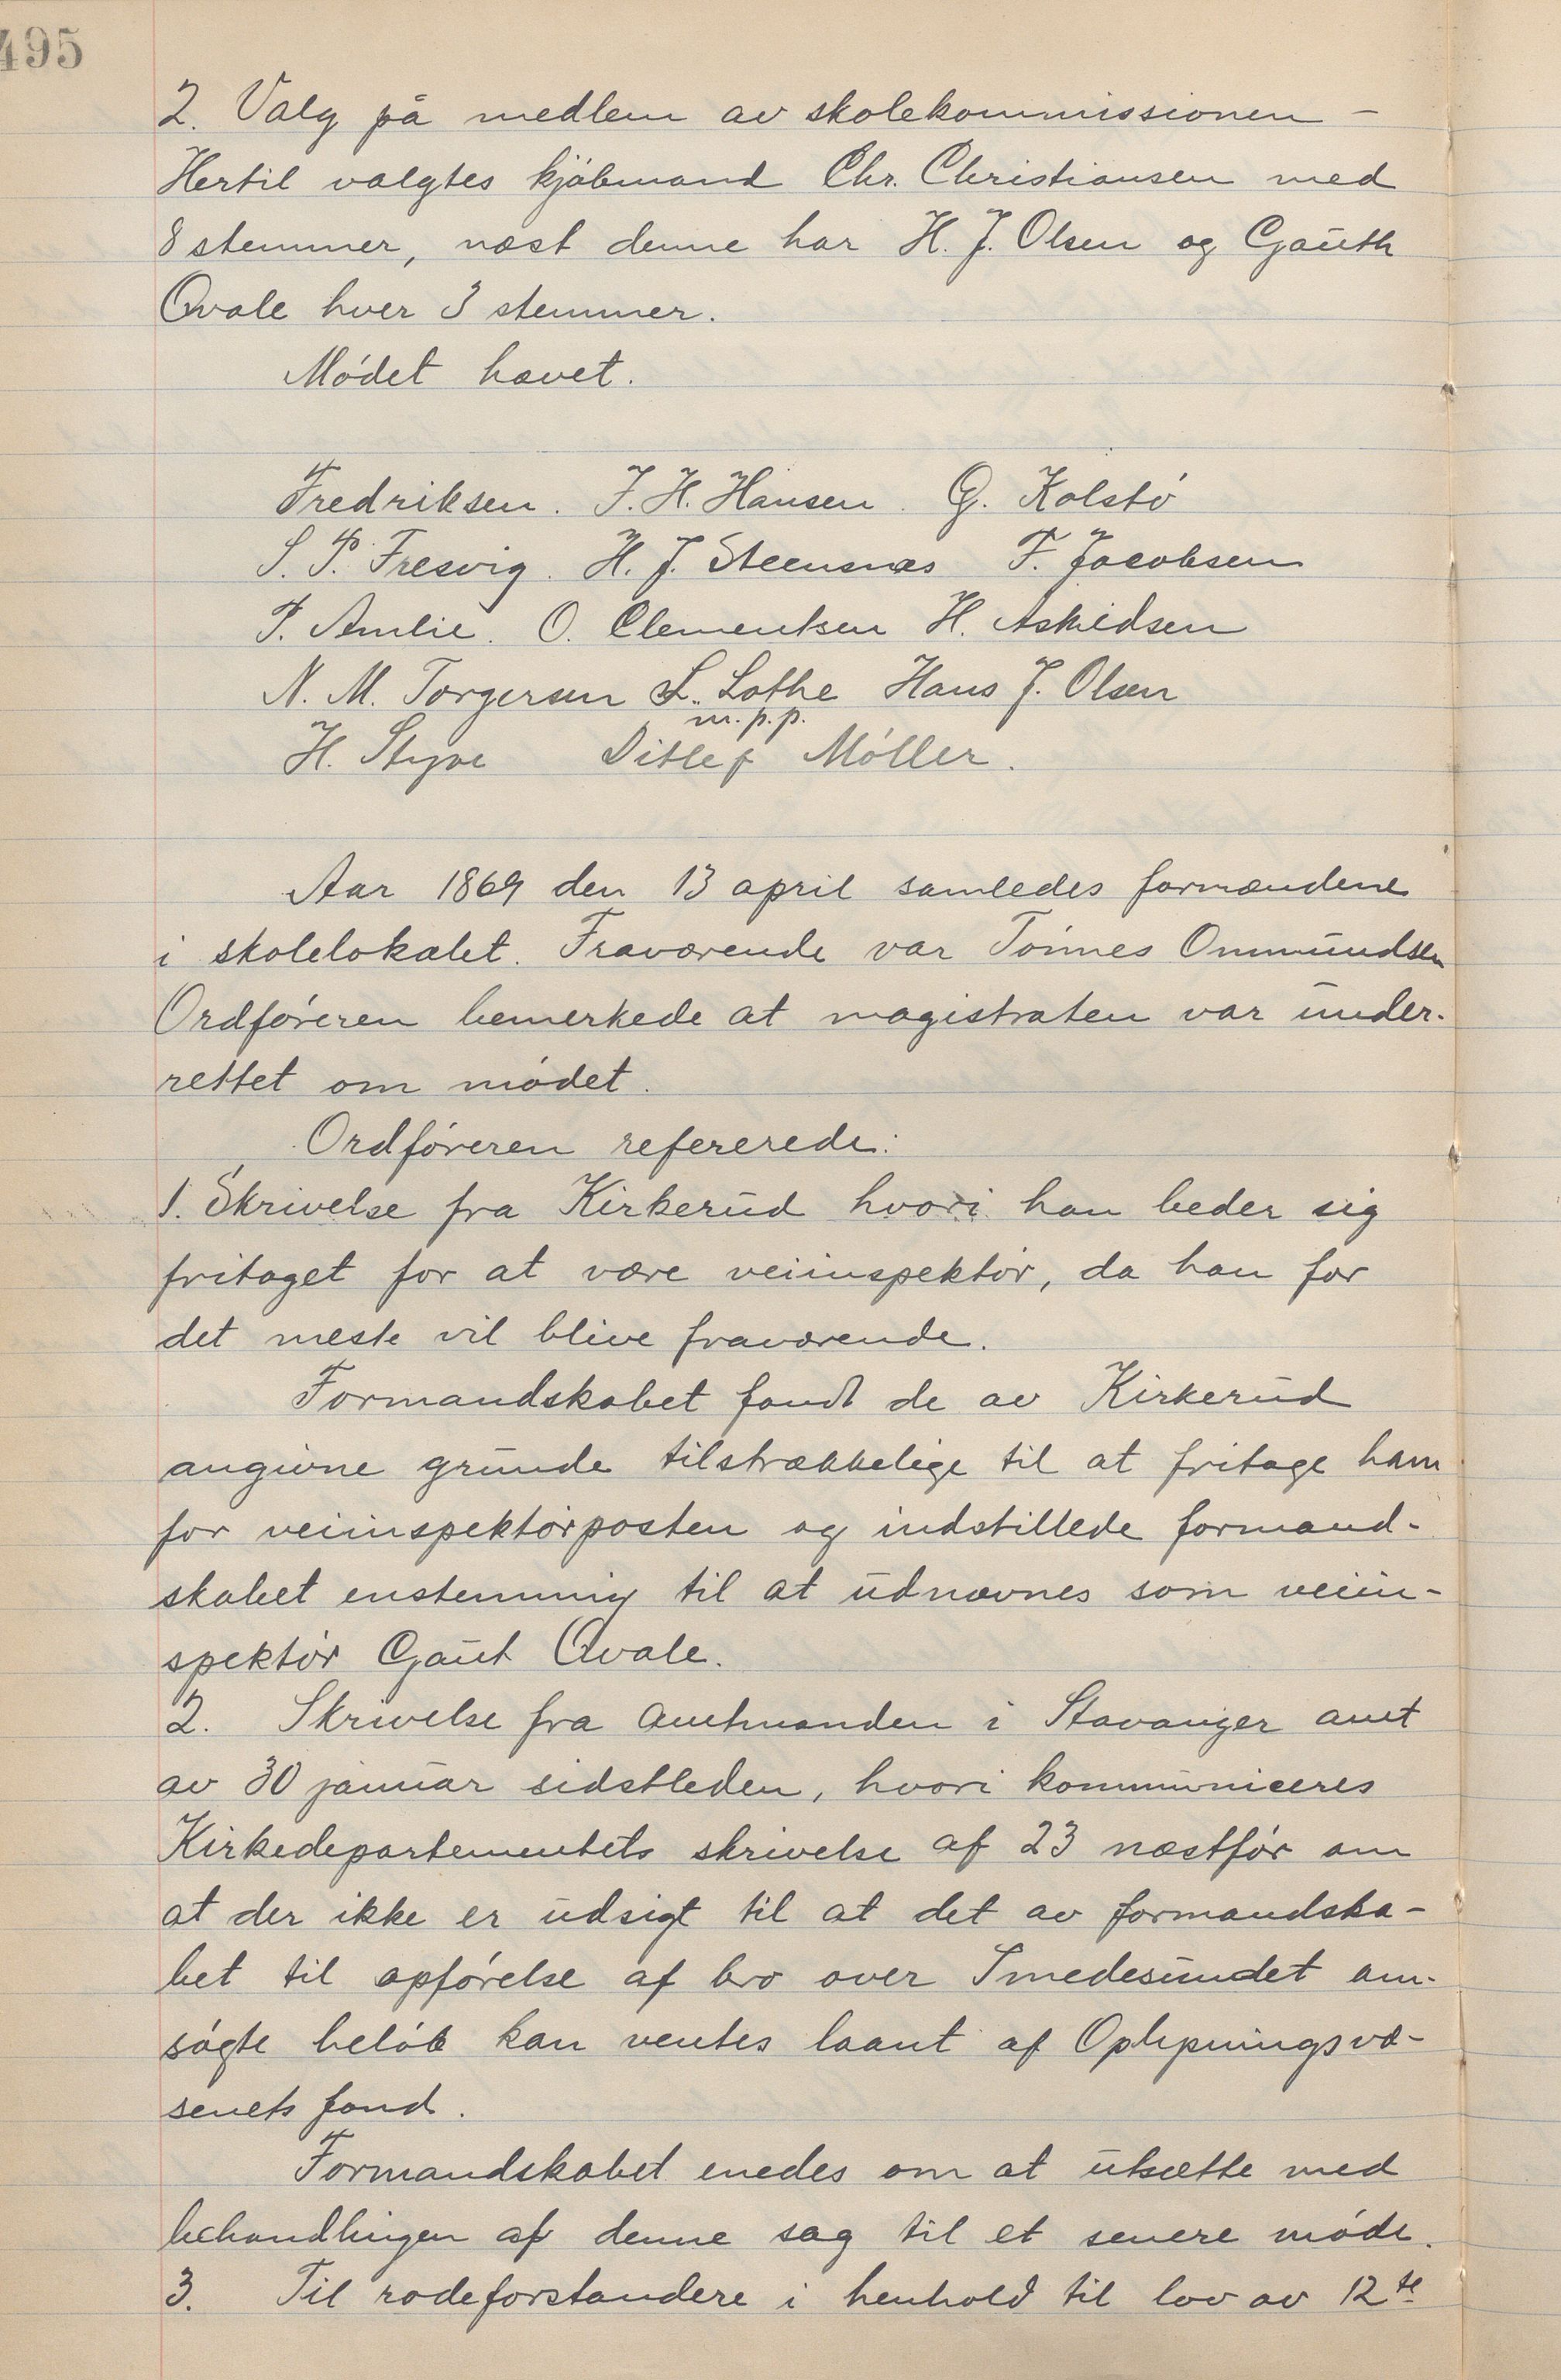 495
2. Valg på medlem av skolekommissionen –
Hertil valgtes kjöbmand Chr. Christiansen med
8 stemmer, næst denne har H. J. Olsen og Gauth
Qvale hver 3 stemmer.
Mödet hævet.
Fredriksen. J. H. Hansen. G. Kolstö
S. P. Fresvig. H. J. Steensnæs F. Jacobsen
P. Amlie. O. Clementsen H. Askildsen
N. M. Torgersen L. Lothe Hans J. Olsen
m. p. p.
H. Styve Ditlef Möller.
Aar 1869 den 13 april samledes formændene
i skolelokalet. Fraværende var Tönnes Ommundsen
Ordföreren bemerkede at magistraten var under-
rettet om mödet.
Ordföreren refererede:
1. Skrivelse fra Kirkerud hvori han beder sig
fritaget for at være veiinspektör, da han for
det meste vil blive fraværende.
Formandskabet fandt de av Kirkerud
angivne grunde tilstrækkelige til at fritage ham
for veiinspektörposten og indstillede formand-
skabet enstemmig til at udnævnes som veiin-
spektör Gaut Qvale.
2. Skrivelse fra Amtmanden i Stavanger amt
av 30 januar sidstleden, hvori kommuniceres
Kirkedepartementets skrivelse af 23 næstför om
at der ikke er udsigt til at det av formandska-
bet til opförelse af bro over Smedesundet an-
sögte belöb kan ventes laant af Oplysningsvæ-
senets fond.
Formandskabet enedes om at utsætte med
behandlingen af denne sag til et senere möde.
3. Til rodeforstandere i henhold til lov av 12te